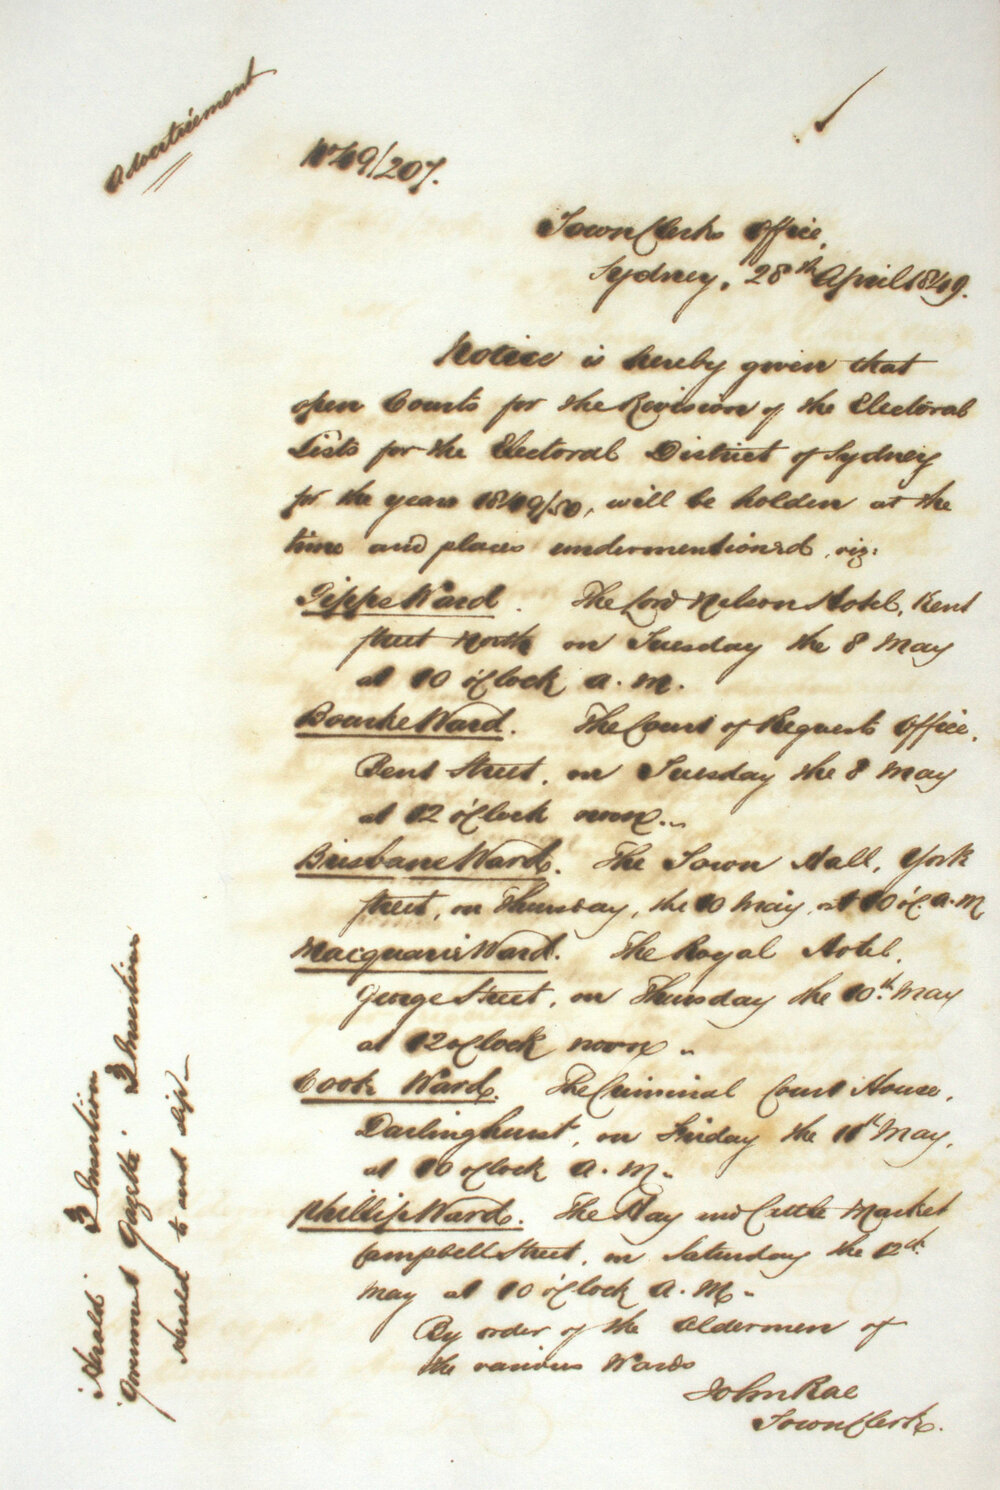 Advertisement
No 49/207.
Town Clerks Office,
Sydney, 28th April 1849.
Notice is hereby given that
open Courts for the Revision of the Electoral
Lists for the Electoral District of Sydney
for the years 1849/50, will be holden at the
time and places undermentioned, viz:
Gipps Ward. The Lord Nelson Hotel, Kent
street North on Tuesday the 8 May
at 10 o'Clock a.m.
Bourke Ward. The Court of Requests Office,
Bent Street, on Tuesday the 8 May
at 12 o'Clock noon.
Brisbane Ward. The Town Hall, York
street, on Thursday, the 10 May, at 10 o'C. a.m
Macquarie Ward. The Royal Hotel,
George Street, on Thursday the 10th May
at 12 o'Clock noon
Cook Ward. The Criminal Court House,
Darlinghurst, on Friday the 11th May,
at 10 o'Clock a.m.
Phillip Ward. The Hay and Cattle Market
Campbell Street, on Saturday the 12th
May at 10 o'Clock a.m.
By order of the Aldermen of
the various Wards
John Rae
Town Clerk.
Herald 3 Insertion
Government Gazette 2 Insertion
Herald to send slip